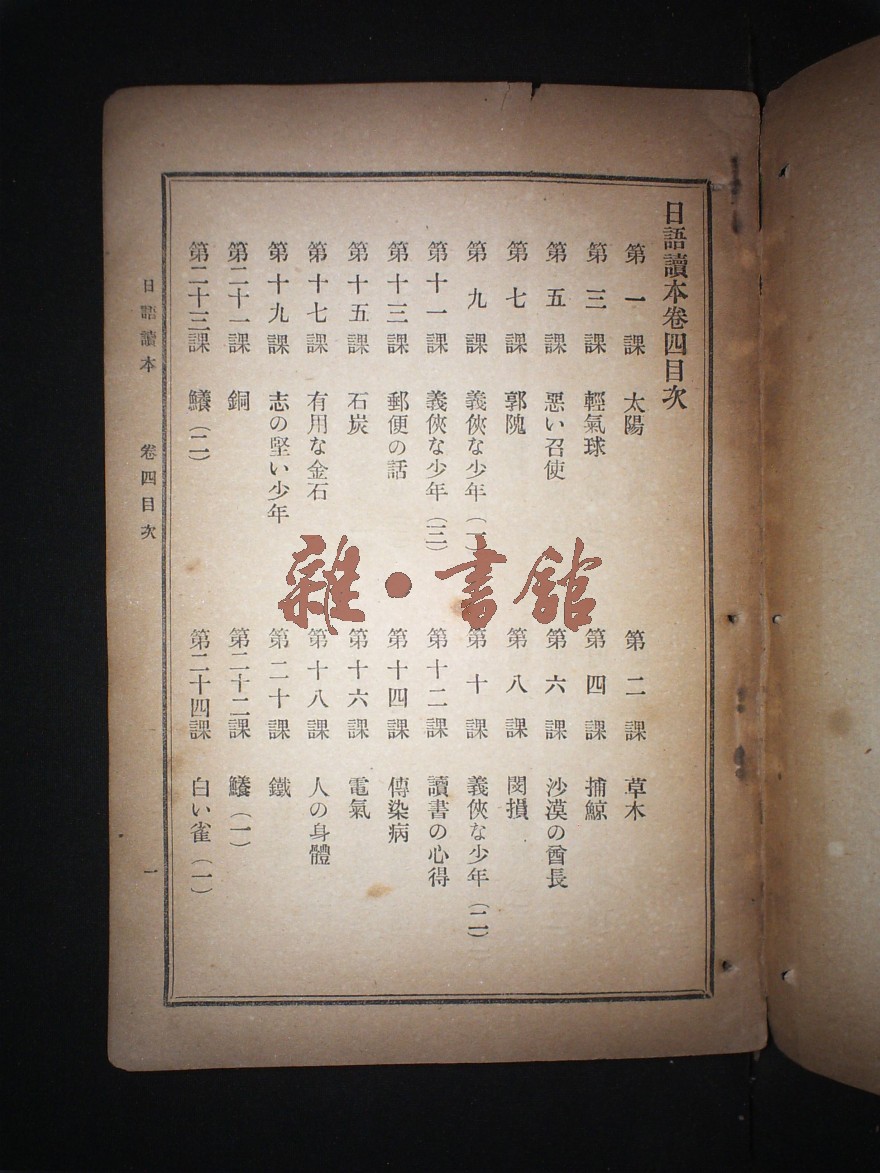 日語讀本卷四目次
第一課 太陽
第二課 草木
第三課 輕氣球
第四課 捕鯨
第五課 悪い召使
第六課 沙漠の酋長
第七課 郭隗
第八課 閔損
第九課 義俠な少年(一)
第十課 義俠な少年(二)
第十一課 義俠な少年(三)
第十二課 讀書の心得
第十三課 郵便の話
第十四課 傳染病
第十五課 石炭
第十六課 電氣
第十七課 有用な金石
第十八課 人の身體
第十九課 志の堅い少年
第二十課 鐵
第二十一課 銅
第二十二課 鱶(一)
第二十三課 鱶(二)
第二十四課 白い雀(一)
日語讀本 卷四目次
一
雜·書館